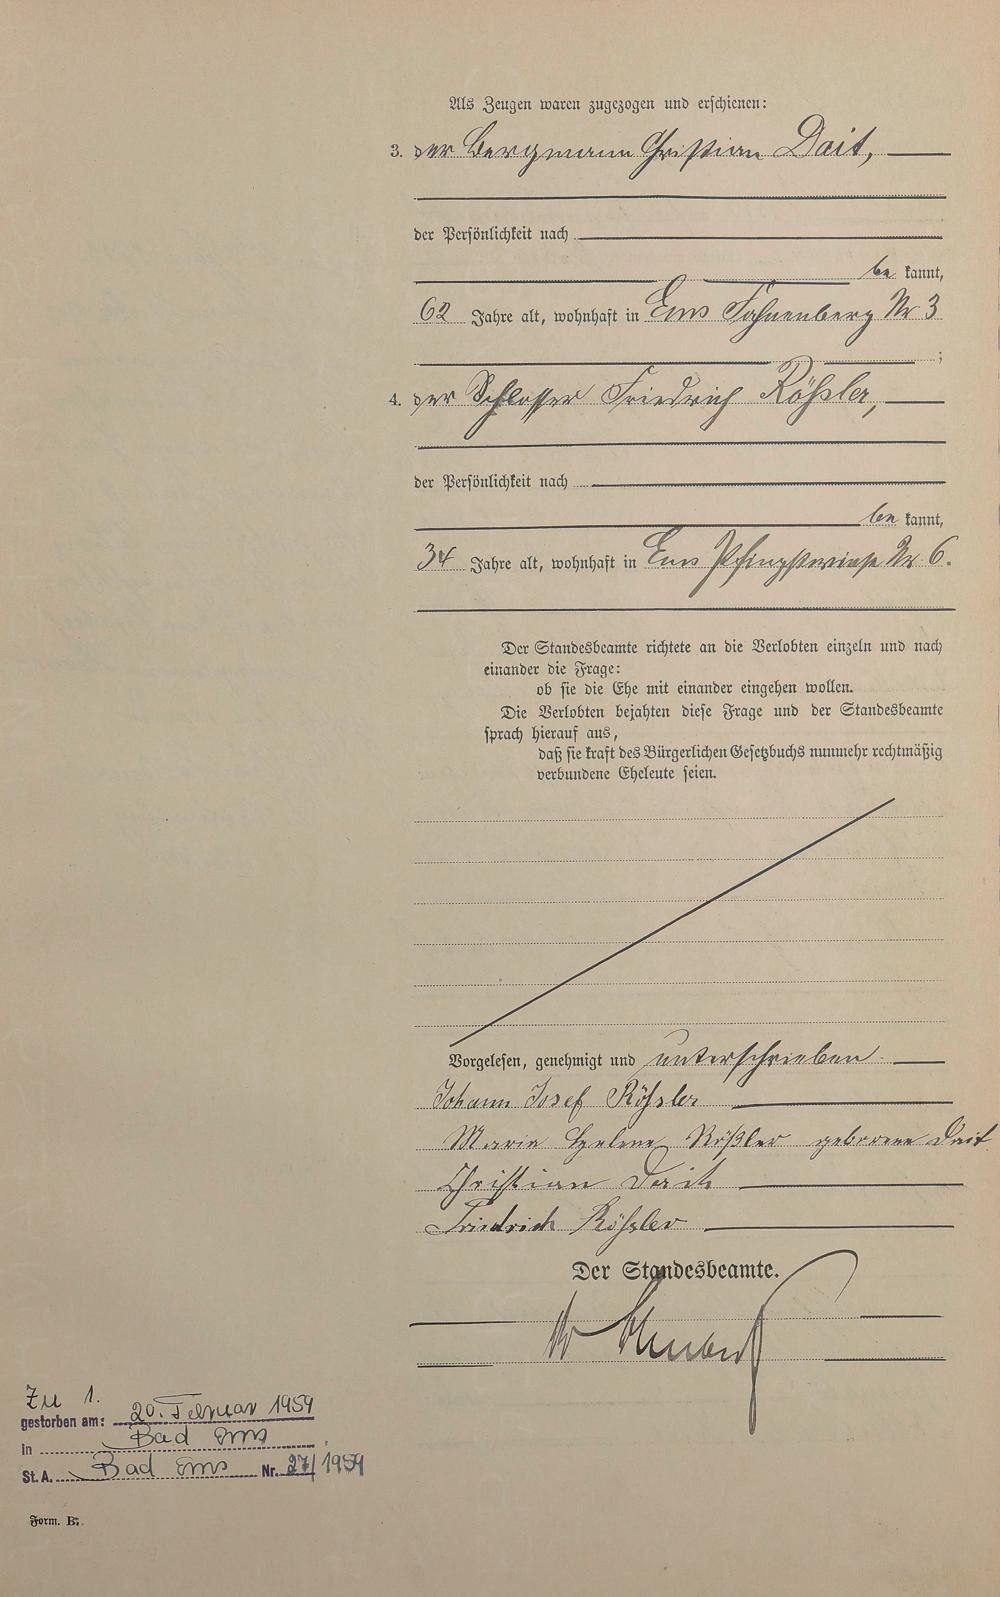 Als Zeugen waren zugezogen und erschienen:
3. der Bergmann Christian Dait,
der Persönlichkeit nach
be kannt,
62 Jahre alt, wohnhaft in Ems Fahnenberg Nr 3
;
4. der Schlosser Friedrich Rößler,
der Persönlichkeit nach
be kannt,
34 Jahre alt, wohnhaft in Ems Pfingstwiese Nr 6.
Der Standesbeamte richtete an die Verlobten einzeln und nach
einander die Frage:
ob sie die Ehe mit einander eingehen wollen.
Die Verlobten bejahten diese Frage und der Standesbeamte
sprach hierauf aus,
daß sie kraft des Bürgerlichen Gesetzbuchs nunmehr rechtmäßig
verbundene Eheleute seien.
Vorgelesen, genehmigt und unterschrieben
Johann Josef Rößler
Maria Helene Rößler geborene Dait
Christian Dait
Friedrich Rößler
Der Standesbeamte.
Zu 1.
gestorben am: 20. Februar 1959
in Bad Ems
St. A. Bad Ems Nr. 27/1959
Form. B.